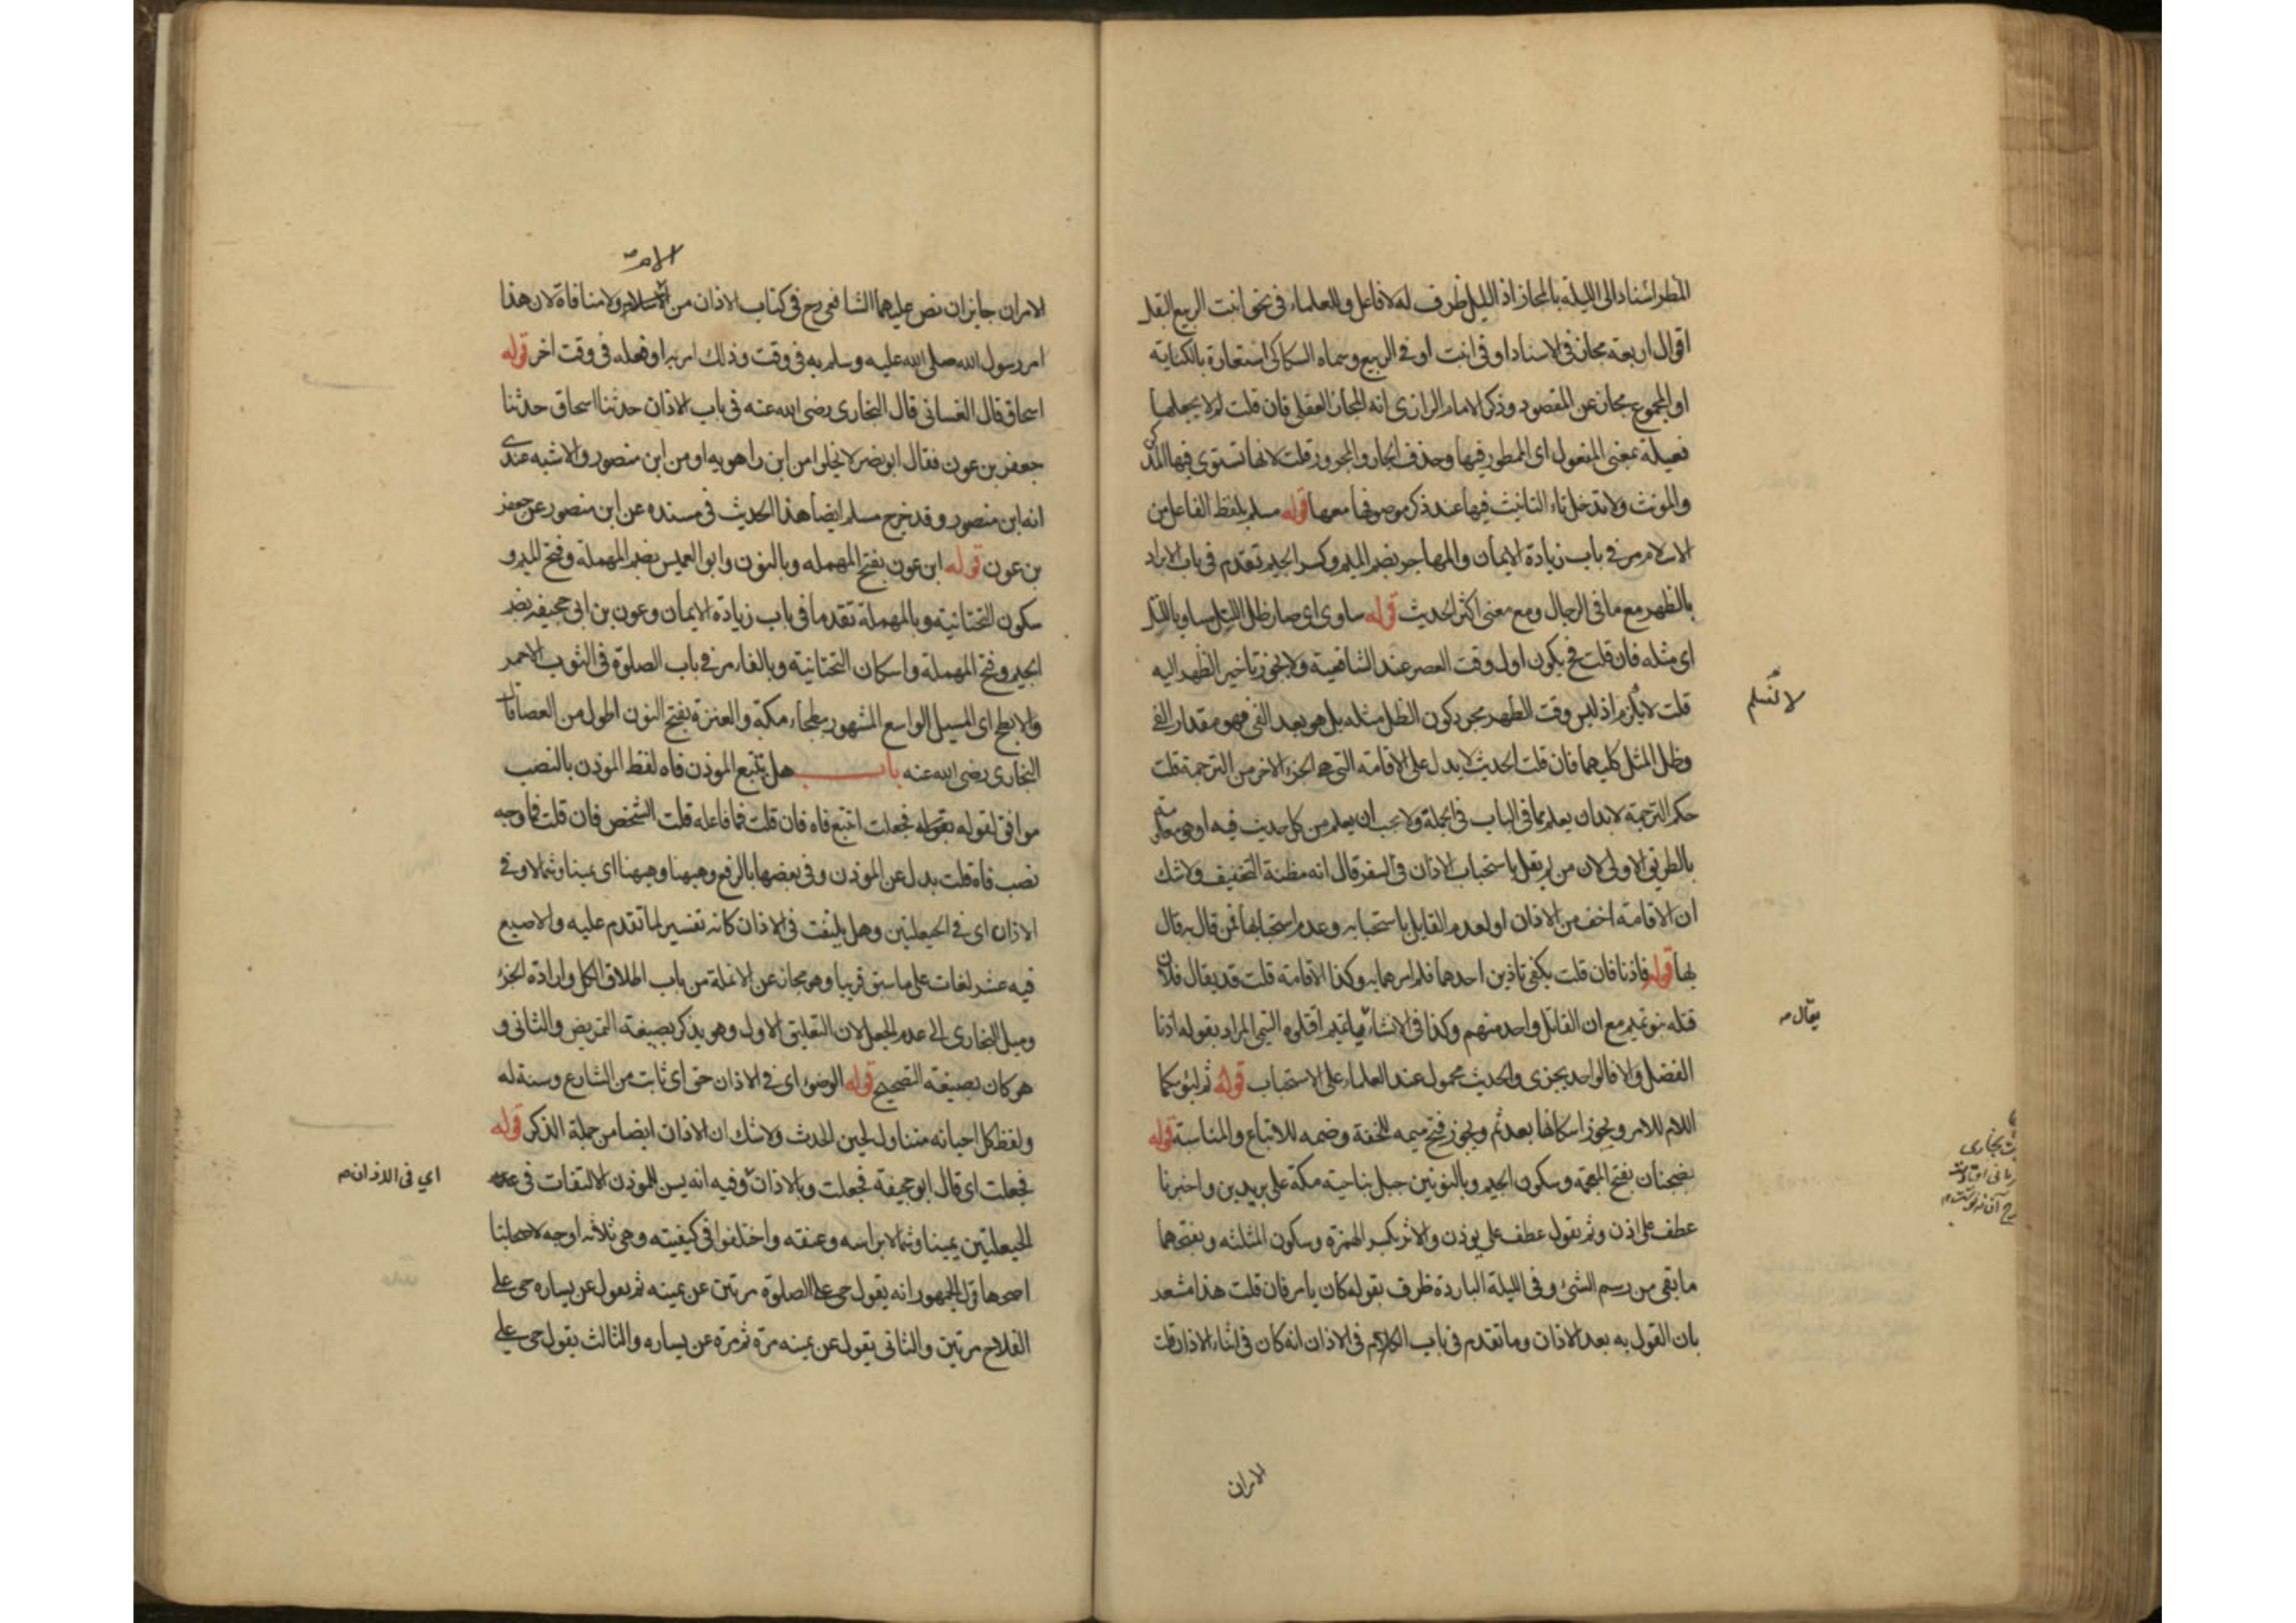 المطر اسنادا الى الليلة بالمجاز اذ الليل ظرف له لا فاعل وللعلماء فى نحو انبت الربيع البقل
اقوال اربعة مجاز فى الاسناد او فى انبت او فى الربيع وسماه السكاكى استعارة بالكناية
او المجموع مجاز عن المقصود وذكر الامام الرازى انه المجاز العقلى فان قلت لم لا يجعلها
فعيلة بمعنى المفعول اى الممطور فيها وحذف الجار والمجرور قلت لانها تستوى فيها المذكر
والمونث ولا تدخل تاء التانيث فيها عند ذكر موصوفها معها قوله مسلم بلفظ الفاعل من
الاسلام مر فى باب زيادة الايمان والمهاجر بضم الميم وكسر الجيم تقدم فى باب الابراد
بالظهر مع ما فى الرجال ومع معنى اكثر الحديث قوله ساوى اى صار ظل التل مساويا للتل
اى مثله فان قلت فح يكون اول وقت العصر عند الشافعية ولا يجوز تاخير الظهر اليه
قلت لا يلزم اذ ليس وقت الظهر مجرد كون الظل مثله بل هو بعد الفى فهو مقدار الفى
لا نسلم
وظل المثل كليهما فان قلت الحديث لا يدل على الاقامة التى هى الجزء الاخر من الترجمة قلت
حكم الترجمة لا بد ان يعلم مما فى الباب فى الجملة ولا يجب ان يعلم من كل حديث فيه او هو معلم منه
بالطريق الاولى لان من لم يقل باستحباب الاذان فى السفر قال انه مظنة التخفيف ولا شك
ان الاقامة اخف من الاذان او لعدم القايل باستحبابه وعدم استحبابها فمن قال به قال
بها قوله فاذنا فان قلت يكفى تاذين احدهما فلم امرهما به وكذا الاقامة قلت قد يقال فلان
قتله بنو تميم مع ان القاتل واحد منهم وكذا فى الانشاء يا تميم اقتلوه التيمى المراد بقوله اذنا
يقال صه
الفضل والا فالواحد يجزى والحديث محمول عند العلماء على الاستحباب قوله ثم ليؤمكما
اللام للامر ويجوز اسكانها بعد ثم ويجوز فتح ميمه للخفة وضمه للاتباع والمناسبة قوله
بضجنان بفتح المعجمة وسكون الجيم وبالنونين جبل بناحية مكة على بريدين واخبرنا
عطف على اذن وثم يقول عطف على يوذن والاثر بكسر الهمزة وسكون المثلثه وبفتحهما
ما بقى من رسم الشئ وفى الليلة الباردة ظرف بقوله كان يامر فان قلت هذا مشعر
بان القول به بعد الاذان وما تقدم فى باب الكلام فى الاذان انه كان فى اثناء الاذان قلت
الامران
الام صه
الامران جايزان نص عليهما الشافعى رح فى كتاب الاذان من الاسلام ولا منافاة لان هذا
امر رسول الله صلى الله عليه وسلم به فى وقت وذلك امر به او فعله فى وقت اخر قوله
اسحاق قال الغسانى قال البخارى رضى الله عنه فى باب الاذان حدثنا اسحاق حدثنا
جعفر بن عون فقال ابو نصر لا يخلوا من ابن راهويه او من ابن منصور والاشبه عندى
انه ابن منصور وقد خرج مسلم ايضا هذا الحديث فى مسنده عن ابن منصور عن جعفر
بن عون قوله ابن عون بفتح المهمله وبالنون وابو العميس بضم المهملة وفتح الميم و
سكون التحتانية وبالمهملة تقدما فى باب زيادة الايمان وعون بن ابى جحيفه بضم
الجيم وفتح المهملة واسكان التحتانية وبالفاء مر فى باب الصلوة فى الثوب الاحمر
والابطح اى المسيل الواسع المشهور ببطحاء مكة والعنزة بفتح النون اطول من العصا قال
البخارى رضى الله عنه باب هل يتتبع الموذن فاه لفظ الموذن بالنصب
موافق لقوله بقوله فجعلت اتتبع فاه فان قلت فما فاعله قلت الشخص فان قلت فما وجه
نصب فاه قلت بدل عن الموذن وفى بعضها بالرفع وههنا وههنا اى يمينا وشمالا وفى
الاذان اى فى الحيعلتين وهل يلتفت فى الاذان كانه تفسير لما تقدم عليه والاصبع
فيه عشر لغات على ما سبق قريبا وهو مجاز عن الانملة من باب اطلاق الكل وارادة الجزء
وميل البخارى الى عدم الجعل لان التعليق الاول وهو يذكر بصيغة التمريض والثانى و
هو كان بصيغة التصحيح قوله الوضوء اى فى الاذان حق اى ثابت من الشارع وسنة له
ولفظ كل احيانه متناول لحين الحدث ولا شك ان الاذان ايضا من جملة الذكر قوله
فجعلت اى قال ابو جحيفة فجعلت وبالاذان وفيه انه يسن للموذن الالتفات فى
اي فى الاذان صه
الحيعلتين يمينا وشمالا براسه وعنقه واختلفوا فى كيفيته وهى ثلاثة اوجه لاصحابنا
اصحها قول الجمهور انه يقول حى على الصلوة مرتين عن يمينه ثم يقول عن يساره حى على
الفلاح مرتين والثانى يقول عن يمينه مرة ثم مرة عن يساره والثالث يقول حى على